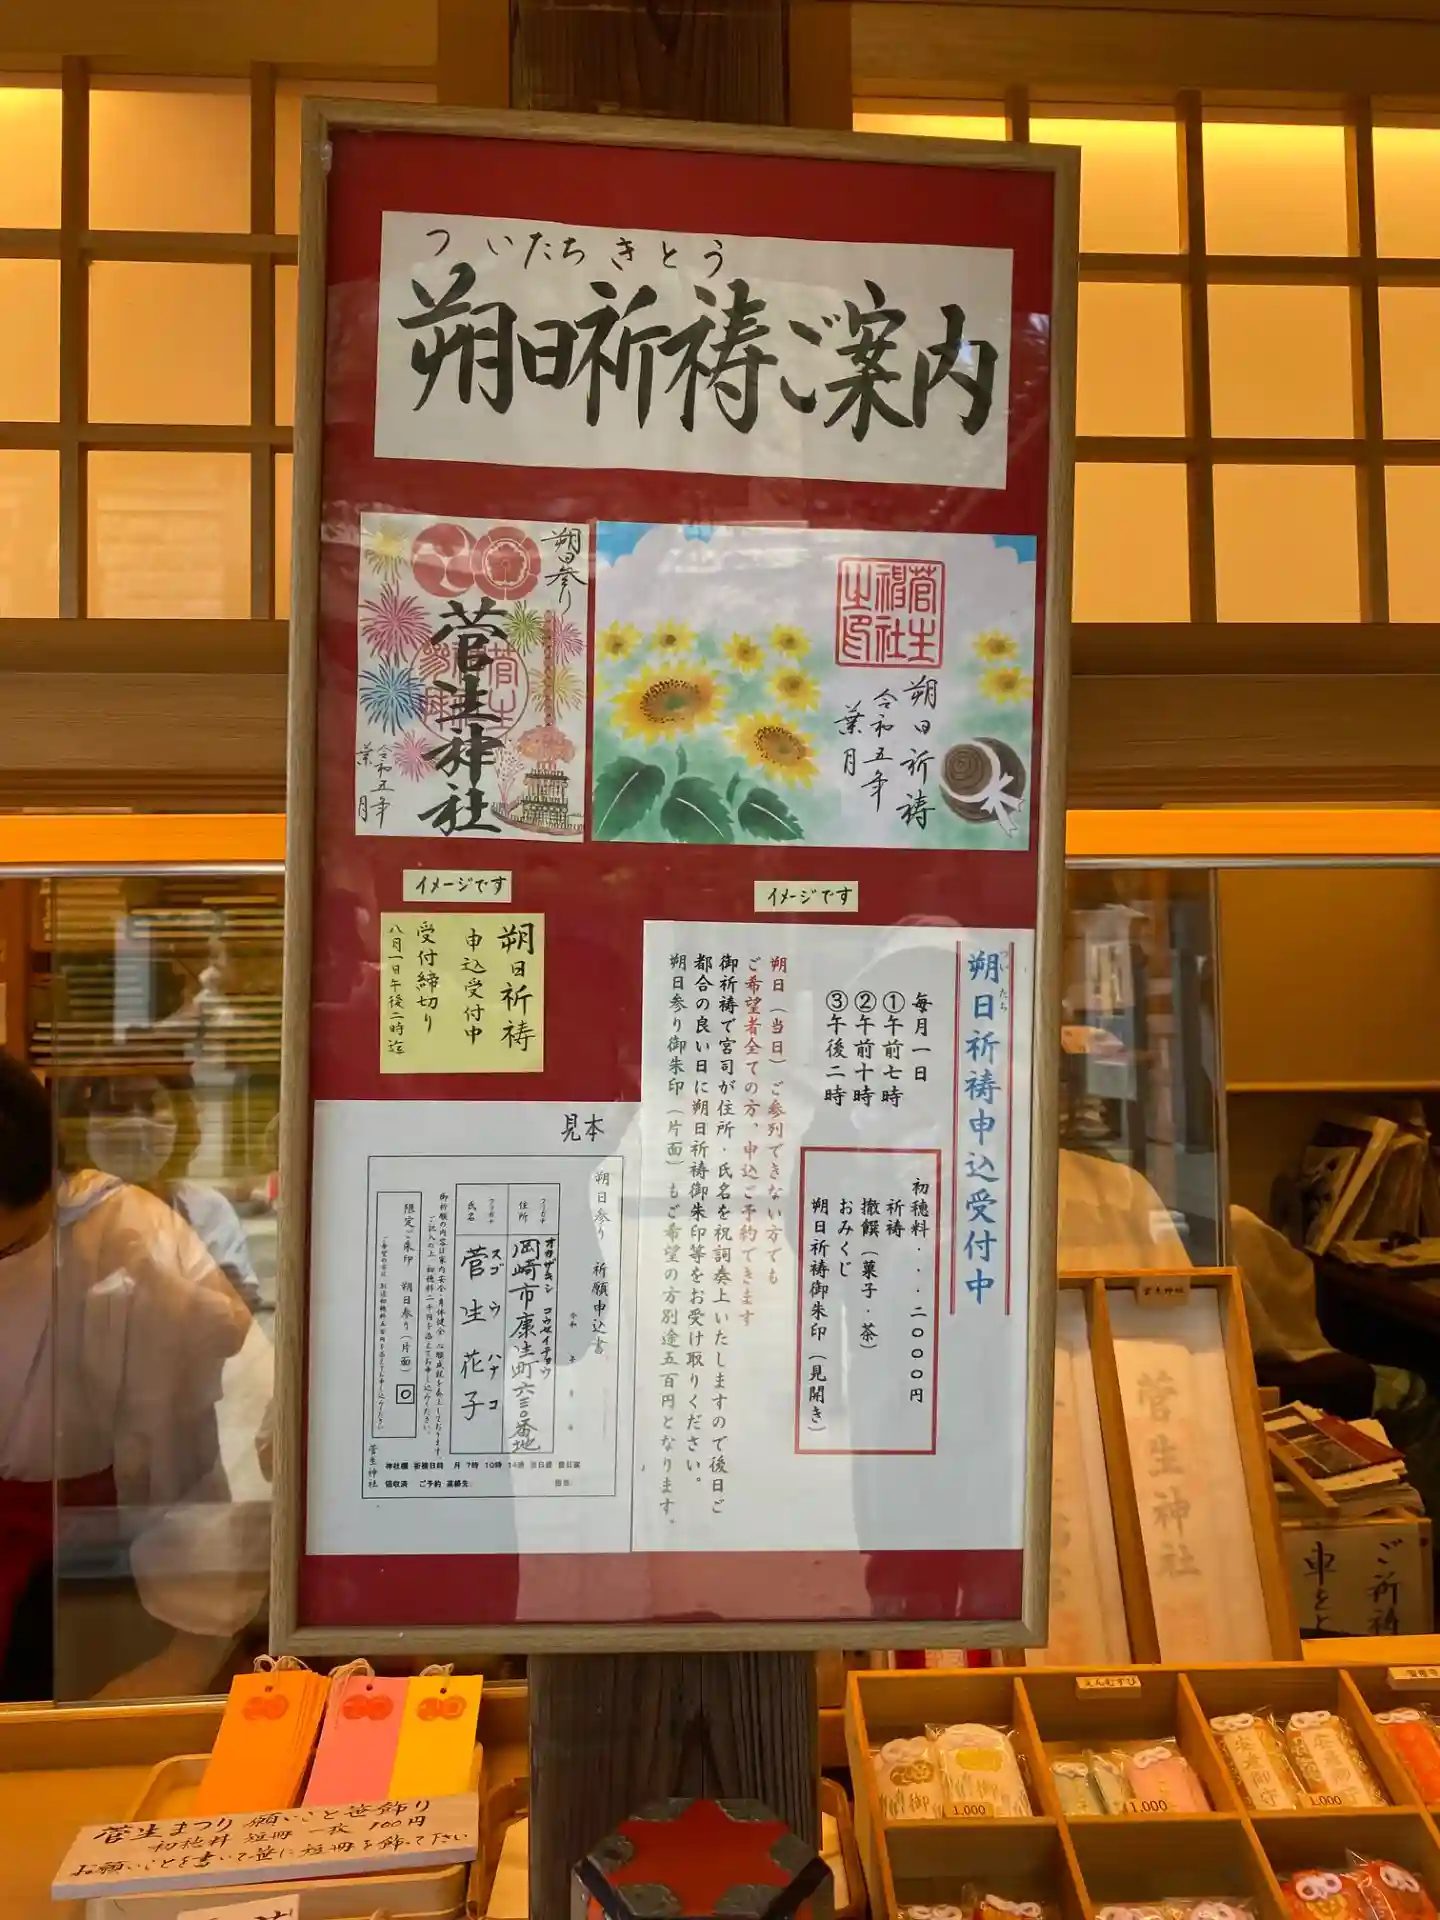 ついたちきとう
朔日祈祷ご案内
朔日参り
菅生神社
令和五年
葉月
菅生
神社
之印
朔日祈祷
令和五年
葉月
イメージです
イメージです
朔日祈祷
申込受付中
受付締切り
八月一日午後二時迄
ついたち
朔日祈祷申込受付中
毎月一日
①午前七時
②午前十時
③午後二時
初穂料・・・二〇〇〇円
祈祷
撤饌（菓子・茶）
おみくじ
朔日祈祷御朱印（見開き）
朔日（当日）ご参列できない方でも
ご希望者全ての方、申込ご予約できます
御祈祷で宮司が住所・氏名を祝詞奏上いたしますので後日ご
都合の良い日に朔日祈祷御朱印等をお受け取りください。
朔日参り御朱印（片面）もご希望の方別途五百円となります。
見本
朔日参り 祈願申込書
フリガナ
住所
オカザキシ コウセイチョウ
岡崎市康生町六三〇番地
フリガナ
氏名
スゴウ ハナコ
菅生花子
限定ご朱印 朔日参り（片面）
菅生神社
神社欄 祈祷日時 月 7時 10時 14時
領収済 ご予約 連絡先
菅生神社
菅生神社
ご祈祷
えんむすび
1,000
1,000
1,000
菅生まつり 願いごと笹飾り
初穂料 短冊一枚 100円
お願いごとを書いて笹に短冊を飾って下さい